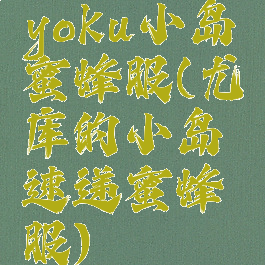 yoku小岛
蜜蜂服(尤
库的小岛
速递蜜蜂
服)